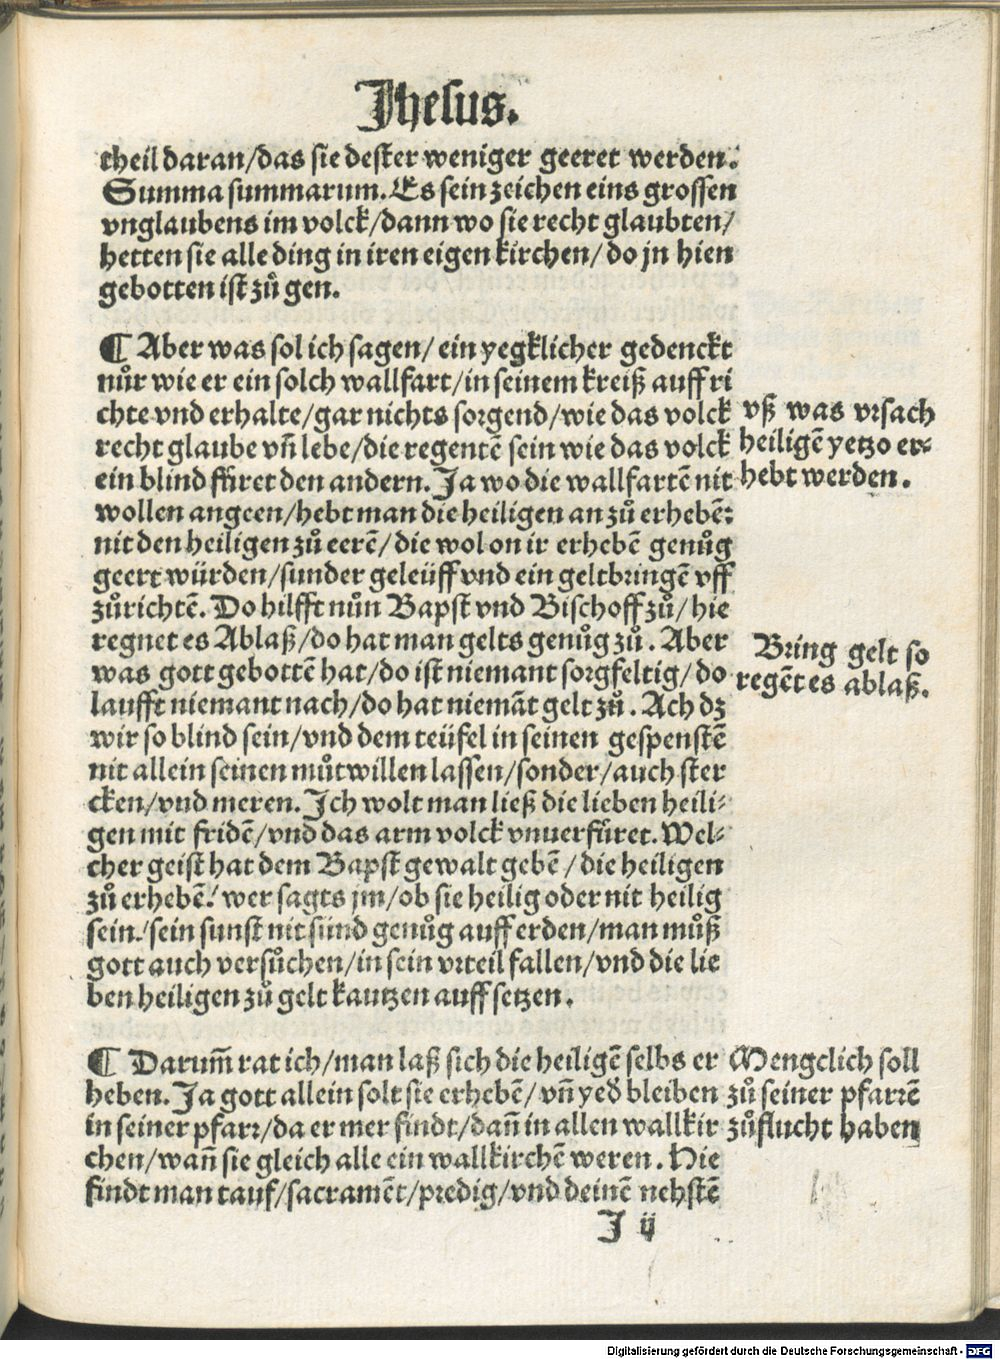 Jhesus.
theil daran/das sie dester weniger geeret werden.
Summa summarum. Es sein zeichen eins grossen
vnglaubens im volck/dann wo sie recht glaubten/
hetten sie alle ding in iren eigen kirchen/do jn hien
gebotten ist zů gen.
¶ Aber was sol ich sagen/ein yegklicher gedenckt
nůr wie er ein solch wallfart/in seinem kreiß auff ri
chte vnd erhalte/gar nichts sorgend/wie das volck
recht glaube vñ lebe/die regentẽ sein wie das volck
ein blind fůret den andern. Ja wo die wallfartẽ nit
wollen angeen/hebt man die heiligen an zů erhebẽ:
nit den heiligen zů eerẽ/die wol on ir erhebẽ genůg
geert würden/sunder geleüff vnd ein geltbringẽ vff
zůrichtẽ. Do hilfft nůn Bapst vnd Bischoff zů/hie
regnet es Ablaß/do hat man gelts genůg zů. Aber
was gott gebottẽ hat/do ist niemant sorgfeltig/do
laufft niemant nach/do hat niemãt gelt zů. Ach dz
wir so blind sein/vnd dem teüfel in seinen gespenstẽ
nit allein seinen můtwillen lassen/sonder/auch ster
cken/vnd meren. Ich wolt man ließ die lieben heili⸗
gen mit fridẽ/vnd das arm volck vnuerfůret. Wel⸗
cher geist hat dem Bapst gewalt gebẽ/die heiligen
zů erhebẽ? wer sagts jm/ob sie heilig oder nit heilig
sein?/sein sunst nit sünd genůg auff erden/man můß
gott auch versůchen/in sein vrteil fallen/vnd die lie
ben heiligen zů gelt kautzen auff setzen.
¶ Darum̃ rat ich/man laß sich die heiligẽ selbs er
heben. Ja gott allein solt sie erhebẽ/vñ yeď bleiben
in seiner pfarr/da er mer findt/dañ in allen wallkir
chen/wañ sie gleich alle ein wallkirchẽ weren. Hie
findt man tauf/sacramẽt/predig/vnd deinẽ nehstẽ
J ij
vß was vrsach
heiligẽ yetzo er⸗
hebt werden.
Bring gelt so
regẽt es ablaß.
Mengclich soll
zů seiner pfarrẽ
zůflucht haben
Digitalisierung gefördert durch die Deutsche Forschungsgemeinschaft - DFG